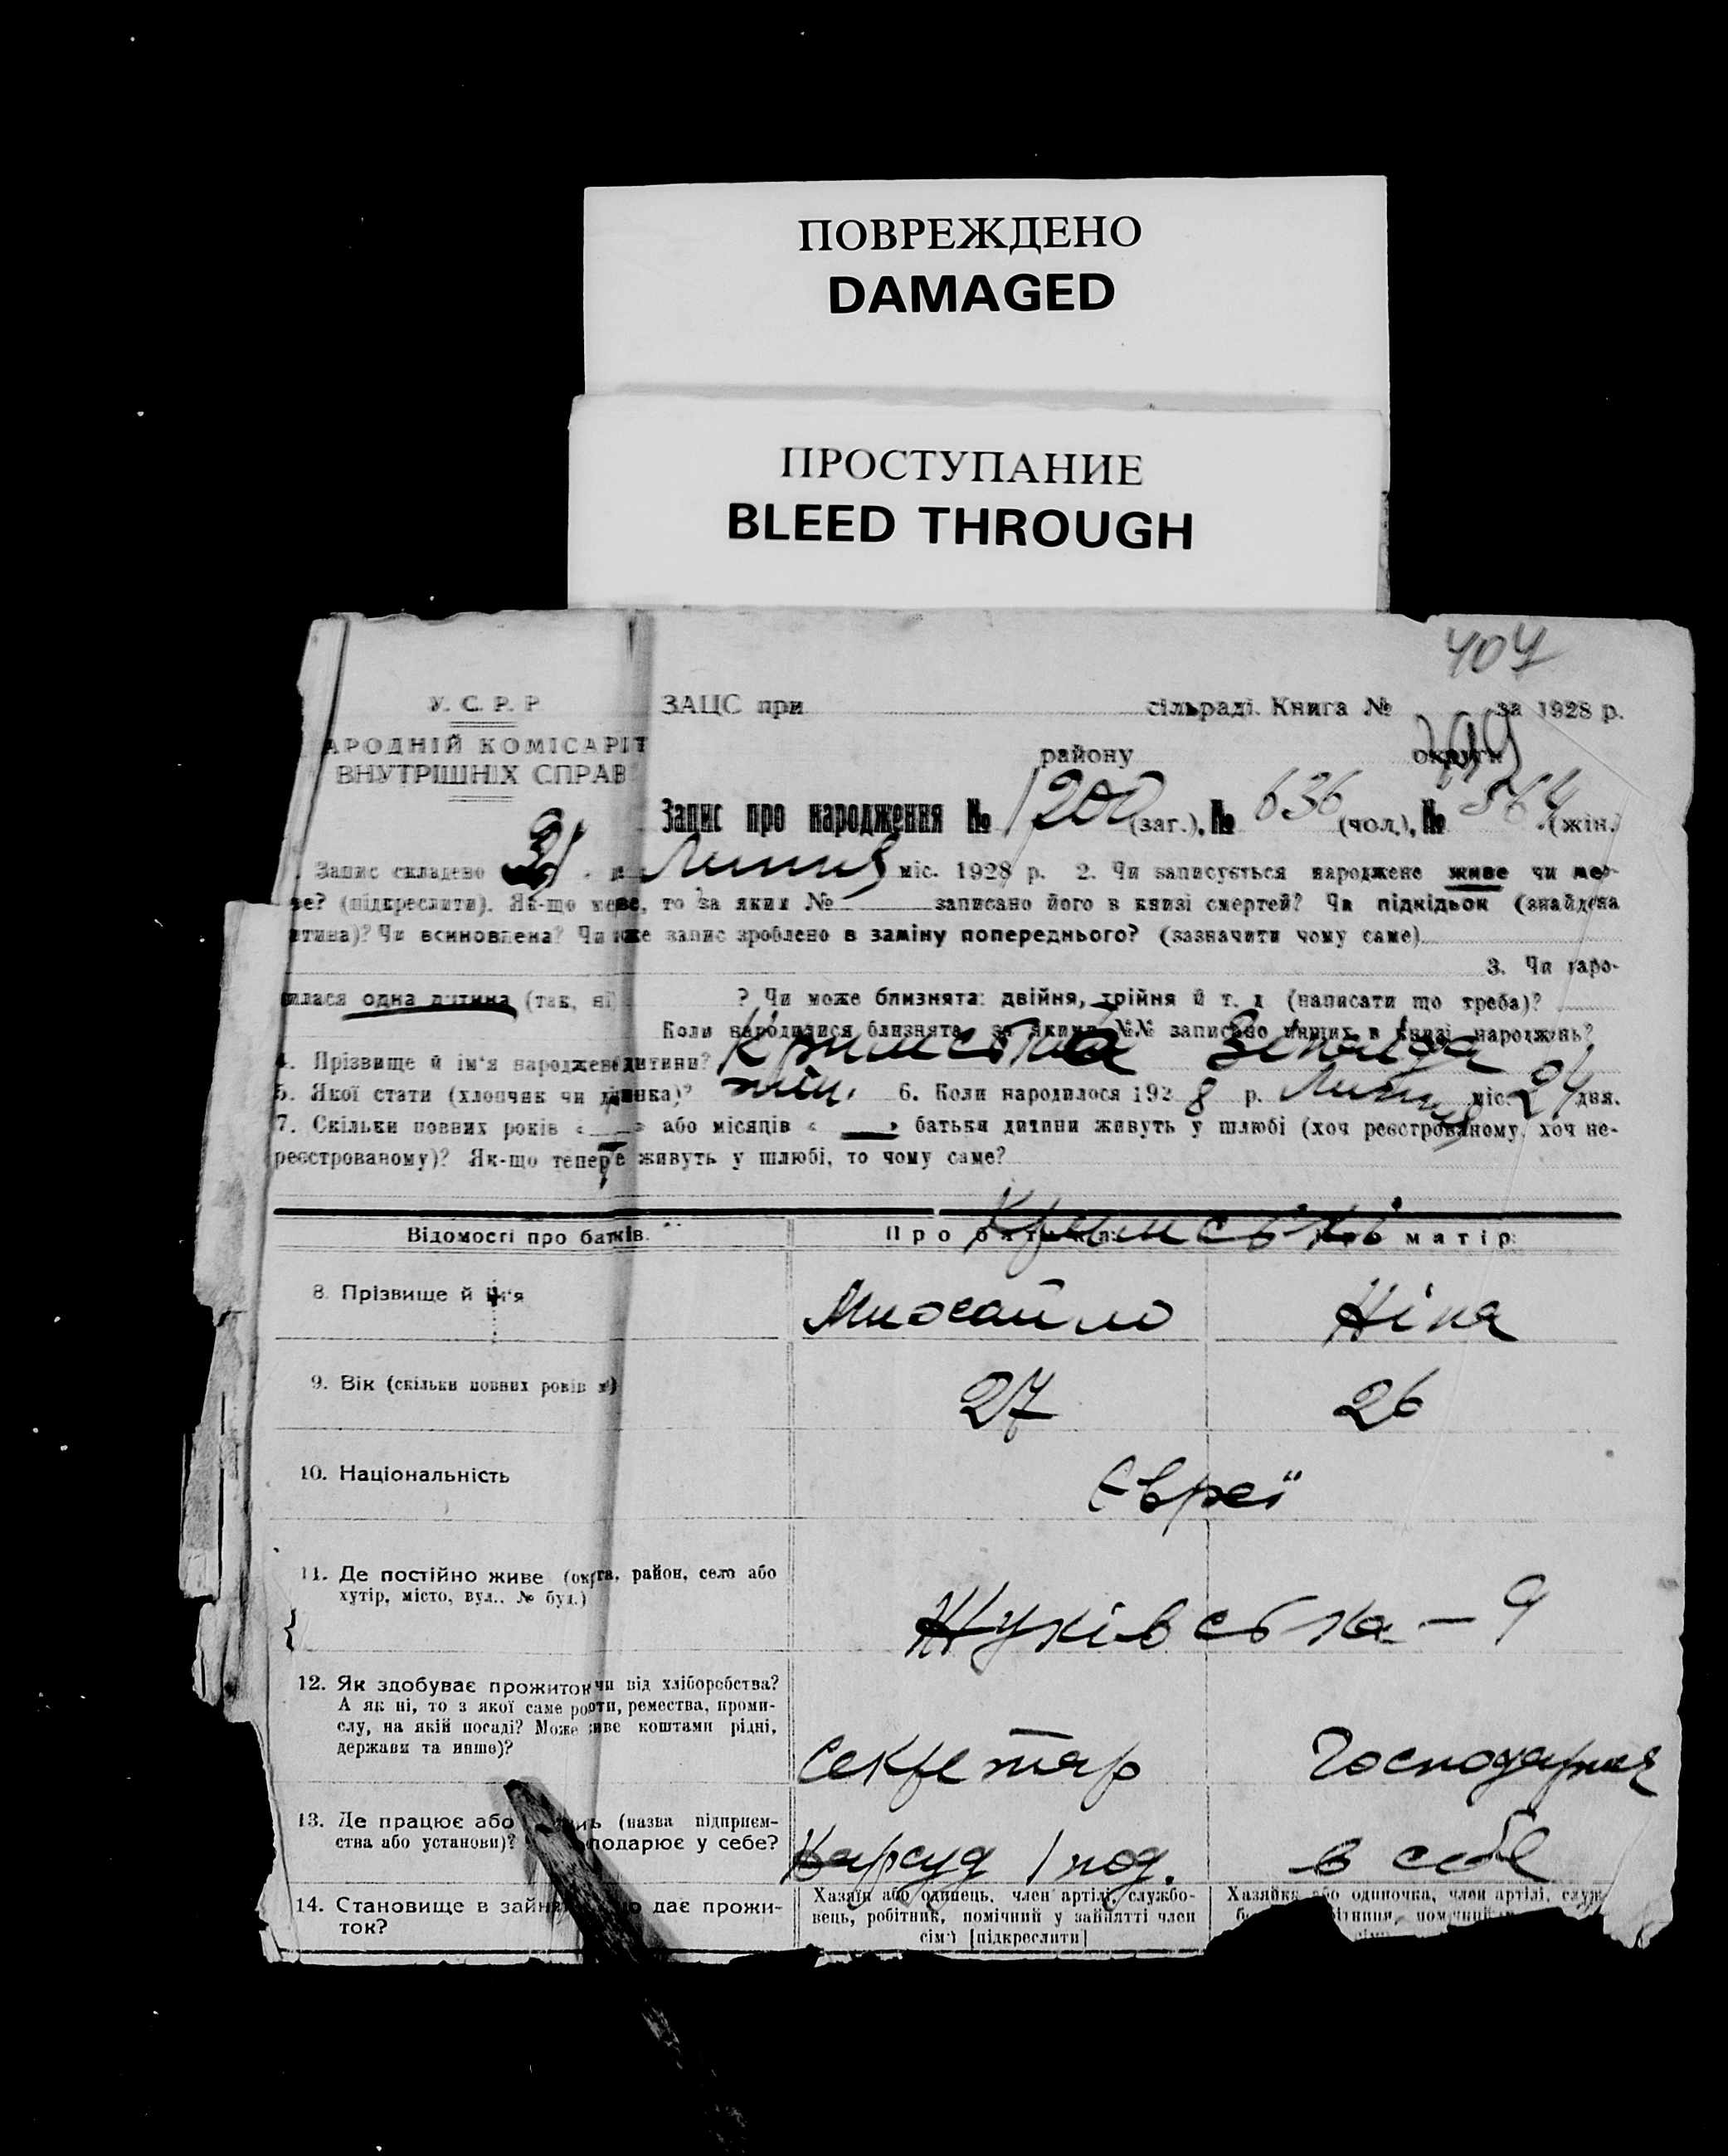 ПОВРЕЖДЕНО
DAMAGED
ПРОСТУПАНИЕ
BLEED THROUGH
404
У. С. Р. Р
ЗАЦС при сільраді. Книга № за 1928 р.
АРОДНІЙ КОМІСАРІЯТ
району округи
ВНУТРІШНІХ СПРАВ
Запис про народження № 1200 (заг.), № 636 (чол.), № 564 (жін.)
Запис складено 31 Липня міс. 1928 р. 2. Чи записується народжене живе чи мер-
ве? (підкреслити). Як-що мерве, то за яким № записано його в книзі смертей? Чи підкідьок (знайдена
итина)? Чи всиновлена? Чи може запис зроблено в заміну попереднього? (зазначити чому саме)
3. Чи наро-
илася одна дитина (так, ні) ? Чи може близнята: двійня, трійня й т. д (написати що треба)?
Коли народилися близнята, за якими №№ записано инших в книзі народжень?
4. Прізвище й ім'я народженої дитини? Кримська Зінаїда
5. Якої стати (хлопчик чи дівчинка)? жін. 6. Коли народилося 1928 р. Липня міс. 24 дня.
7. Скільки повних років « » або місяців « » батьки дитини живуть у шлюбі (хоч реєстрованому, хоч не-
реєстрованому)? Як-що тепер не живуть у шлюбі, то чому саме?
Відомості про батьків. Про батька: Про матір:
Кримські
8. Прізвище й ім'я Михайло Ніна
9. Вік (скільки повних років) 27 26
10. Національність Євреї
11. Де постійно живе (округа, район, село або
хутір, місто, вул., № буд.)
Жуківська - 9
12. Як здобуває прожиток чи від хліборобства?
А як ні, то з якої саме роботи, ремества, проми-
слу, на якій посаді? Може живе коштами рідні,
держави та инше)?
Секретар Господарка
13. Де працює або (назва підприєм-
ства або установи)? господарює у себе?
Нарсуд 1 под. в себе
14. Становище в занятті, що дає прожи-
ток?
Хазяїн або одинець, член артілі, службо-
вець, робітник, помічний у занятті член
сім'ї [підкреслити]
Хазяйка або одиночка, член артілі, служ-